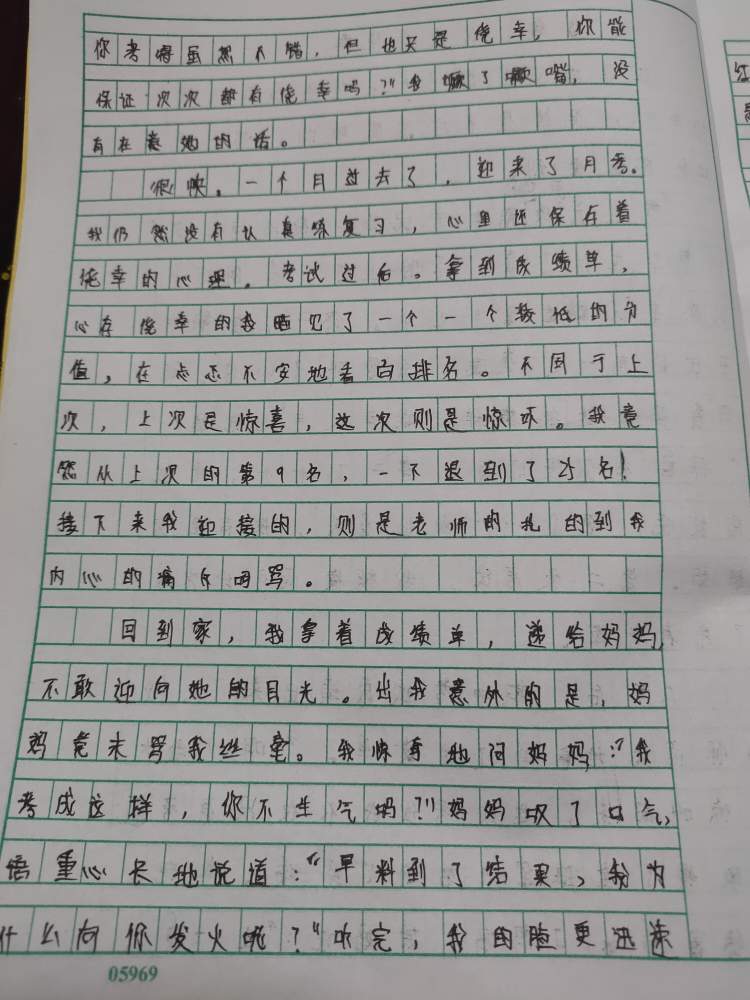 你考得虽然不错，但也只是侥幸，你能
保证次次都有侥幸吗？”我撇了撇嘴，没
有在意她的话。
很快，一个月过去了，迎来了月考。
我仍然没有认真练复习，心里还保存着
侥幸的心理。考试过后。拿到成绩单，
心存侥幸的我瞄见了一个一个较低的分
值，在忐忑不安地看向排名。不同于上
次，上次是惊喜，这次则是惊吓。我竟
然从上次的第9名，一下退到了25名！
接下来我迎接的，则是老师的扎的到我
内心的痛斥明骂。
回到家，我拿着成绩单，递给妈妈，
不敢迎向她的目光。出我意外的是，妈
妈竟未骂我丝毫。我惊讶地问妈妈：“我
考成这样，你不生气吗？”妈妈叹了口气，
语重心长地说道：“早料到了结果，我为
什么向你发火呢？”听完，我的脸更迅速
05969